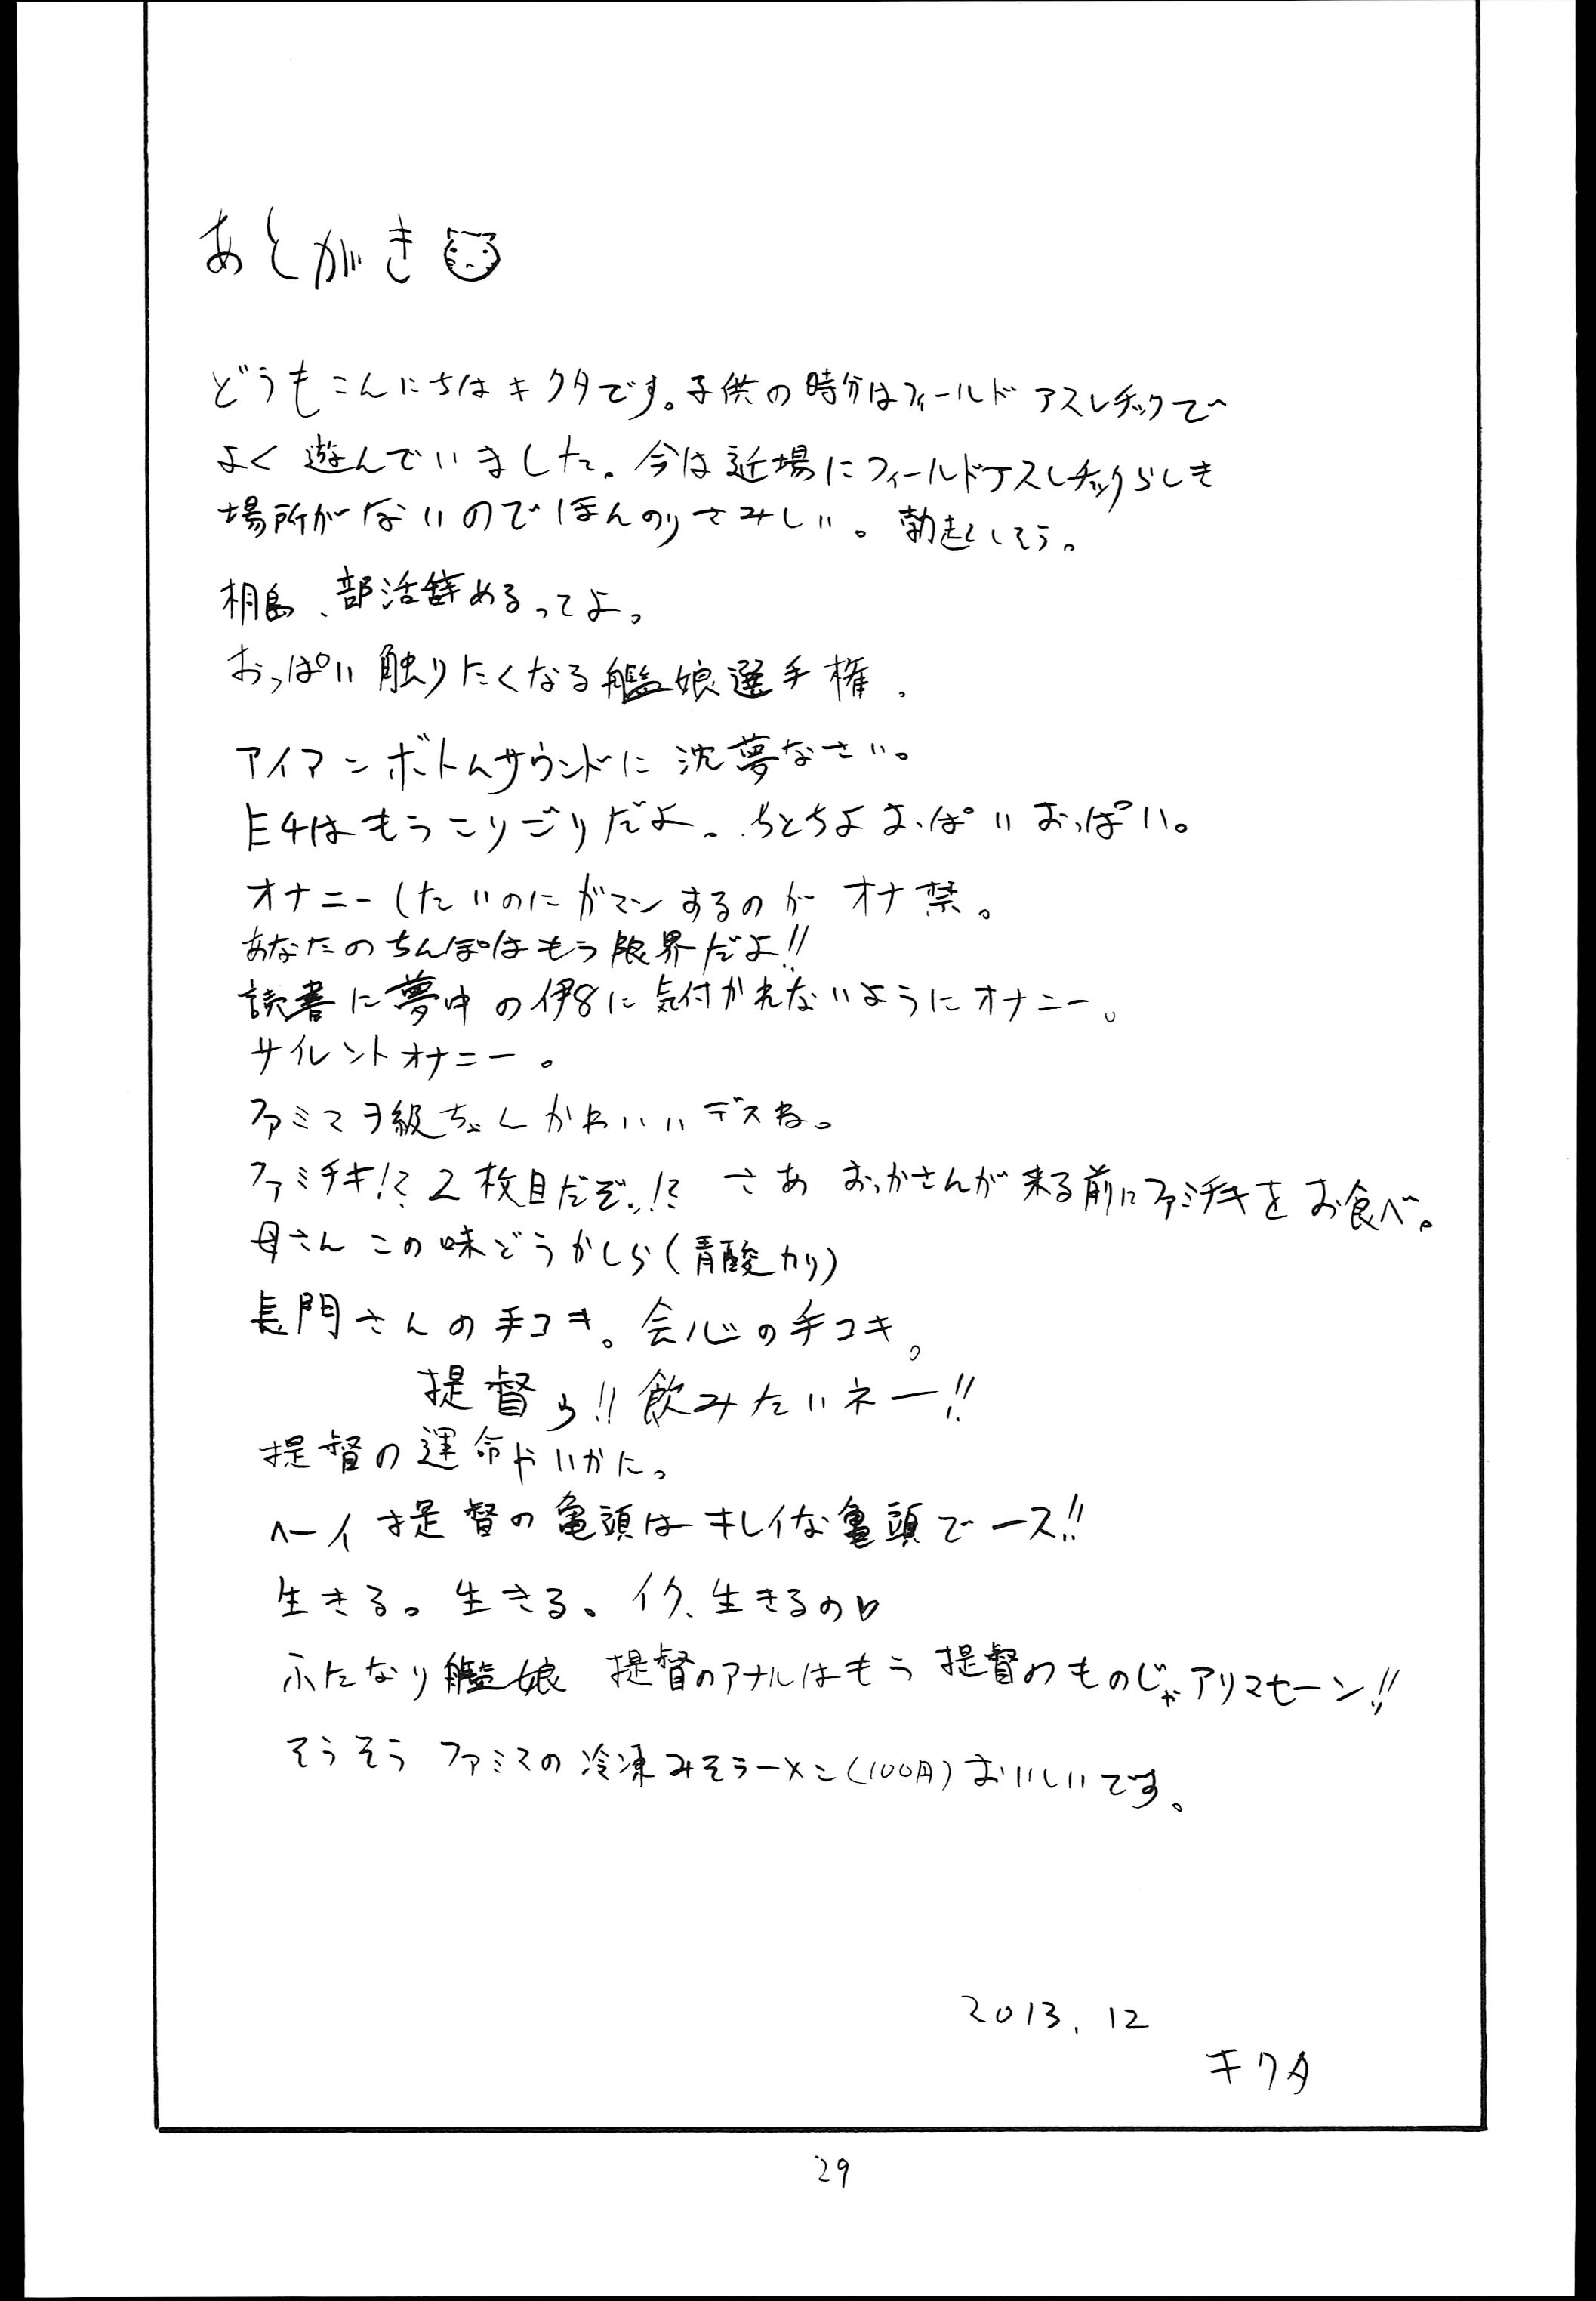 あとがき
どうもこんにちはキクタです。子供の時分はフィールドアスレチックで
よく遊んでいました。今は近場にフィールドアスレチックらしき
場所がないのでほんのりさみしい。勃起しそう。
桐島、部活辞めるってよ。
おっぱい触りたくなる艦娘選手権。
アイアンボトムサウンドに沈夢なさい。
E4はもうこりごりだよ。ちとちよおっぱいおっぱい。
オナニーしたいのにガマンするのがオナ禁。
あなたのちんぽはもう限界だよ!!
読書に夢中の伊8に気付かれないようにオナニー。
サイレントオナニー。
ファミマヲ級ちゃんかわいいデスね。
ファミチキ!?2枚目だぞ!? さあ おっかさんが来る前にファミチキをお食べ。
母さんこの味どうかしら(青酸カリ)
長門さんの手コキ。会心の手コキ。
提督ゥ!!飲みたいネー!!
提督の運命やいかに。
ヘーイ提督の亀頭はキレイな亀頭でース!!
生きる。生きる。イク、生きるの♡
ふたなり艦娘 提督のアナルはもう提督のものじゃアリマセーン!!
そうそう ファミマの冷凍みそラーメン(100円)おいしいです。
2013.12
キクタ
29